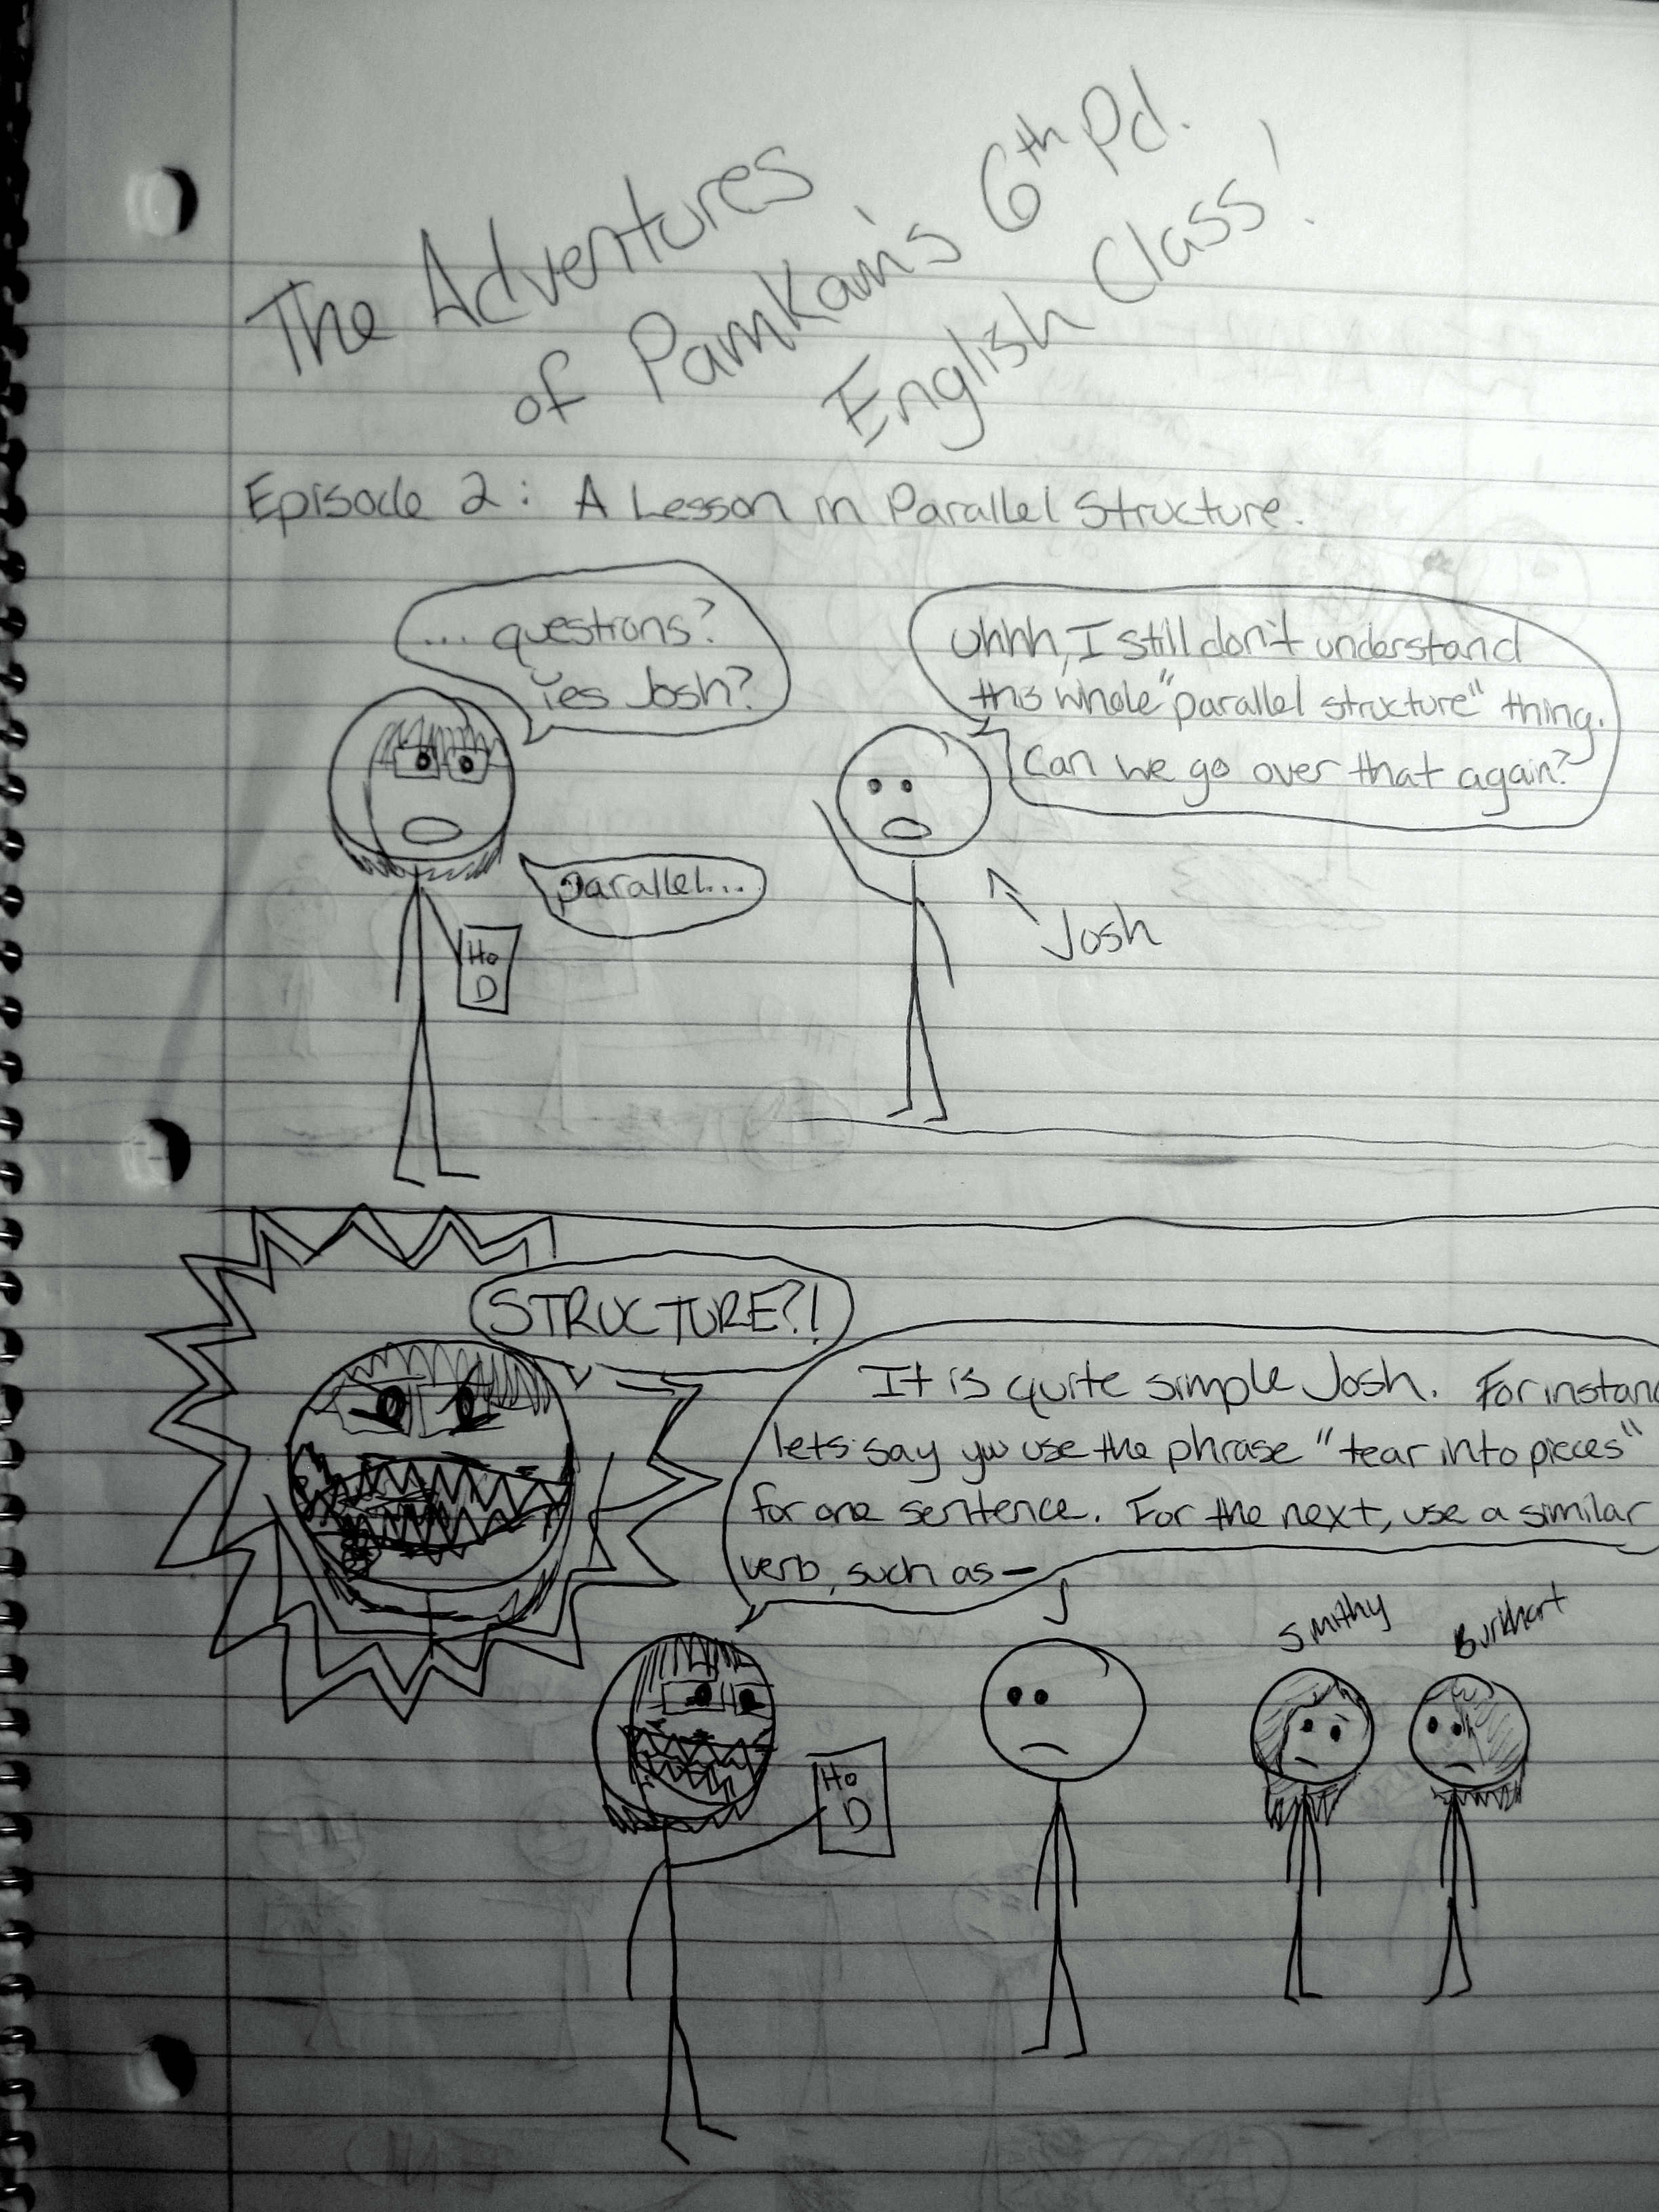 The Adventures
of Pamkain's 6th Pd.
English Class!
Episode 2: A Lesson in Parallel Structure.
... questions?
Yes Josh?
Uhhh, I still don't understand
this whole "parallel structure" thing.
Can we go over that again?
parallel...
Josh
Ho
D
STRUCTURE?!
It is quite simple Josh. For instanc
lets say you use the phrase "tear into pieces"
for one sentence. For the next, use a similar
verb, such as —
Smithy
Burkhart
Ho
D